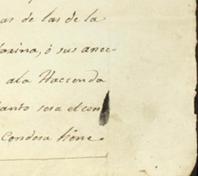 as de las de la
arina, ó sus anec-
ala Hacienda
anto sera el con
Condesa